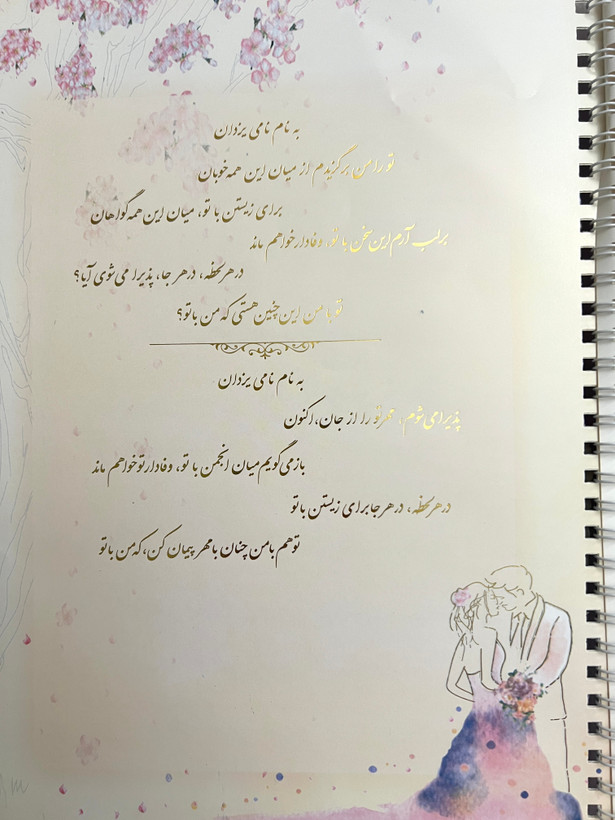 به نام نامی یزدان
تو را من برگزیدم از میان این همه خوبان
برای زیستن با تو، میان این همه گواهان
برلب آرم این سخن با تو، وفادار خواهم ماند
در هر لحظه، در هر جا، پذیرا می شوی آیا؟
تو با من این چنین هستی که من با تو؟
به نام نامی یزدان
پذیرا می شوم، مهر تو را از جان، اکنون
باز می گویم میان انجمن با تو، وفادار تو خواهم ماند
در هر لحظه، در هر جا برای زیستن با تو
تو هم با من چنان با مهر پیمان کن، که من با تو